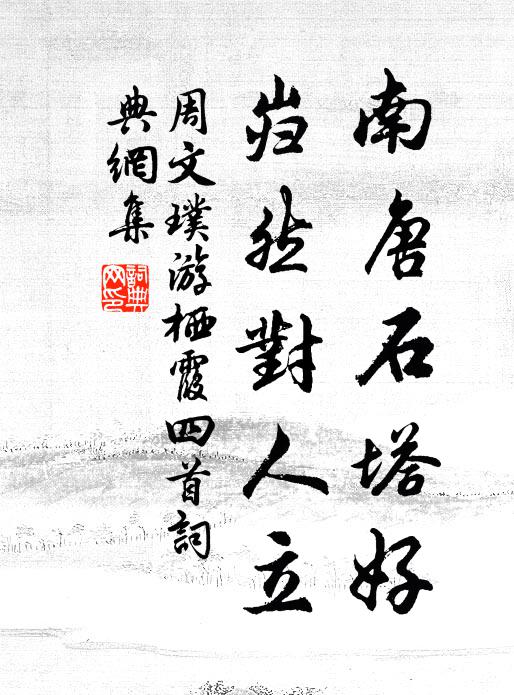 南唐石塔好
岿然對人立
周文璞游栖霞四首詞
典網集
詞典
网印